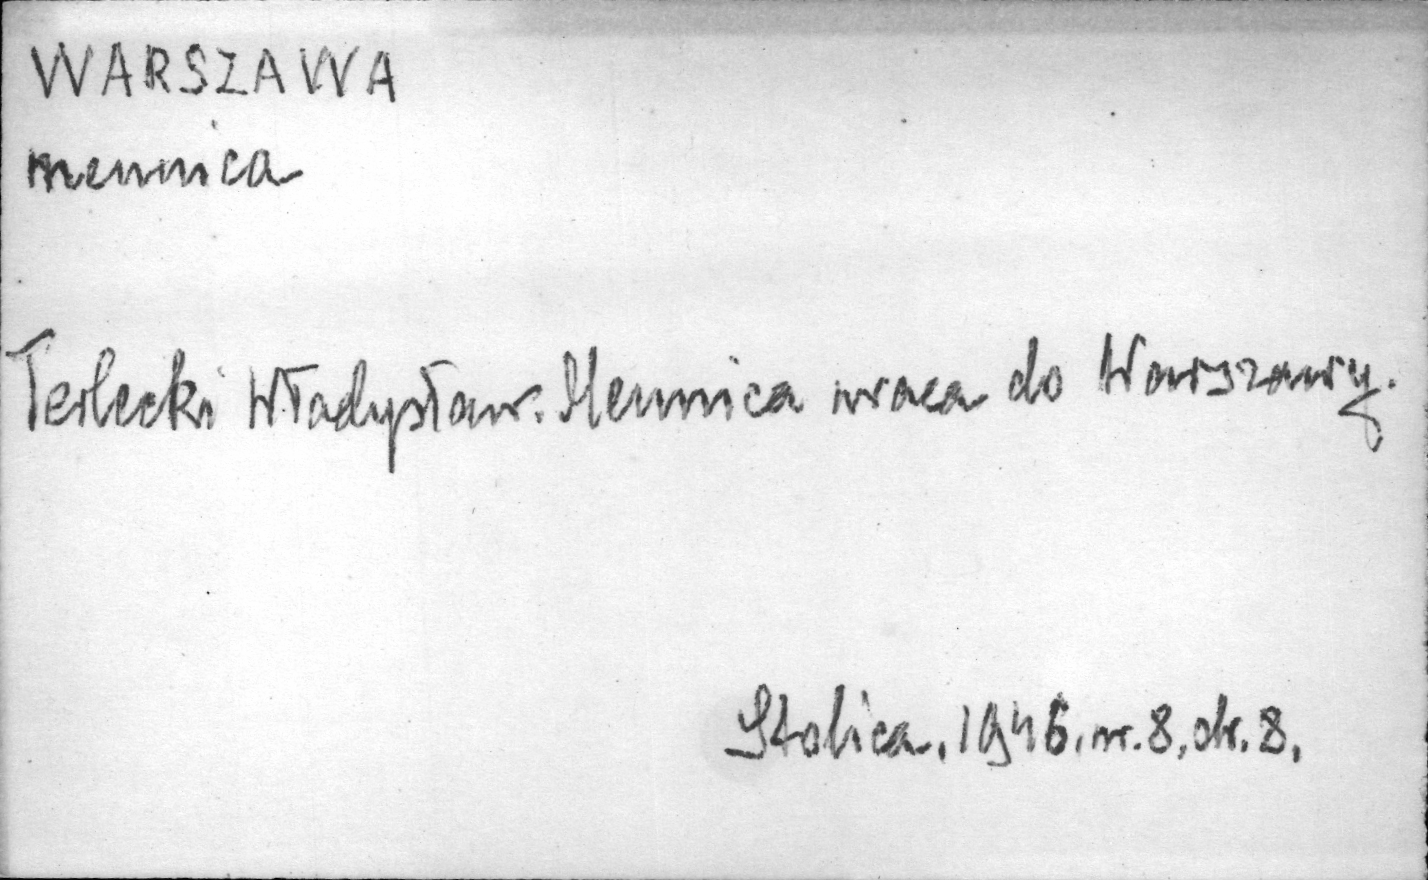 WARSZAWA
mennica
Terlecki Władysław. Mennica wraca do Warszawy.
Stolica, 1946, nr. 8, str. 8,